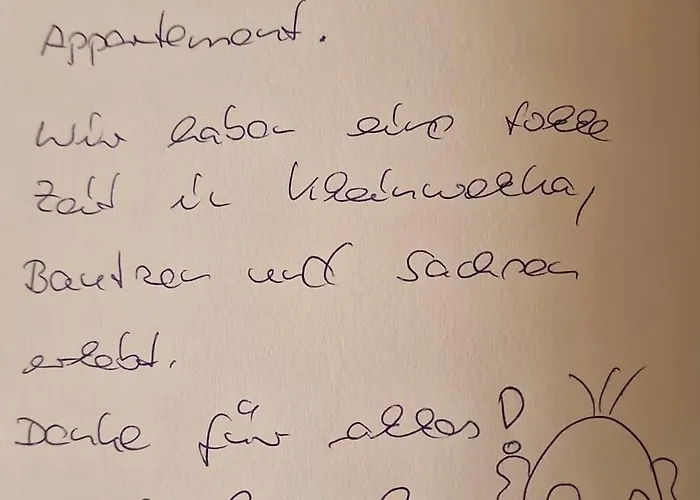 Appartement.
Wir haben eine tolle
Zeit in Kleinwelka,
Bautzen und Sachsen
erlebt.
Danke für alles!